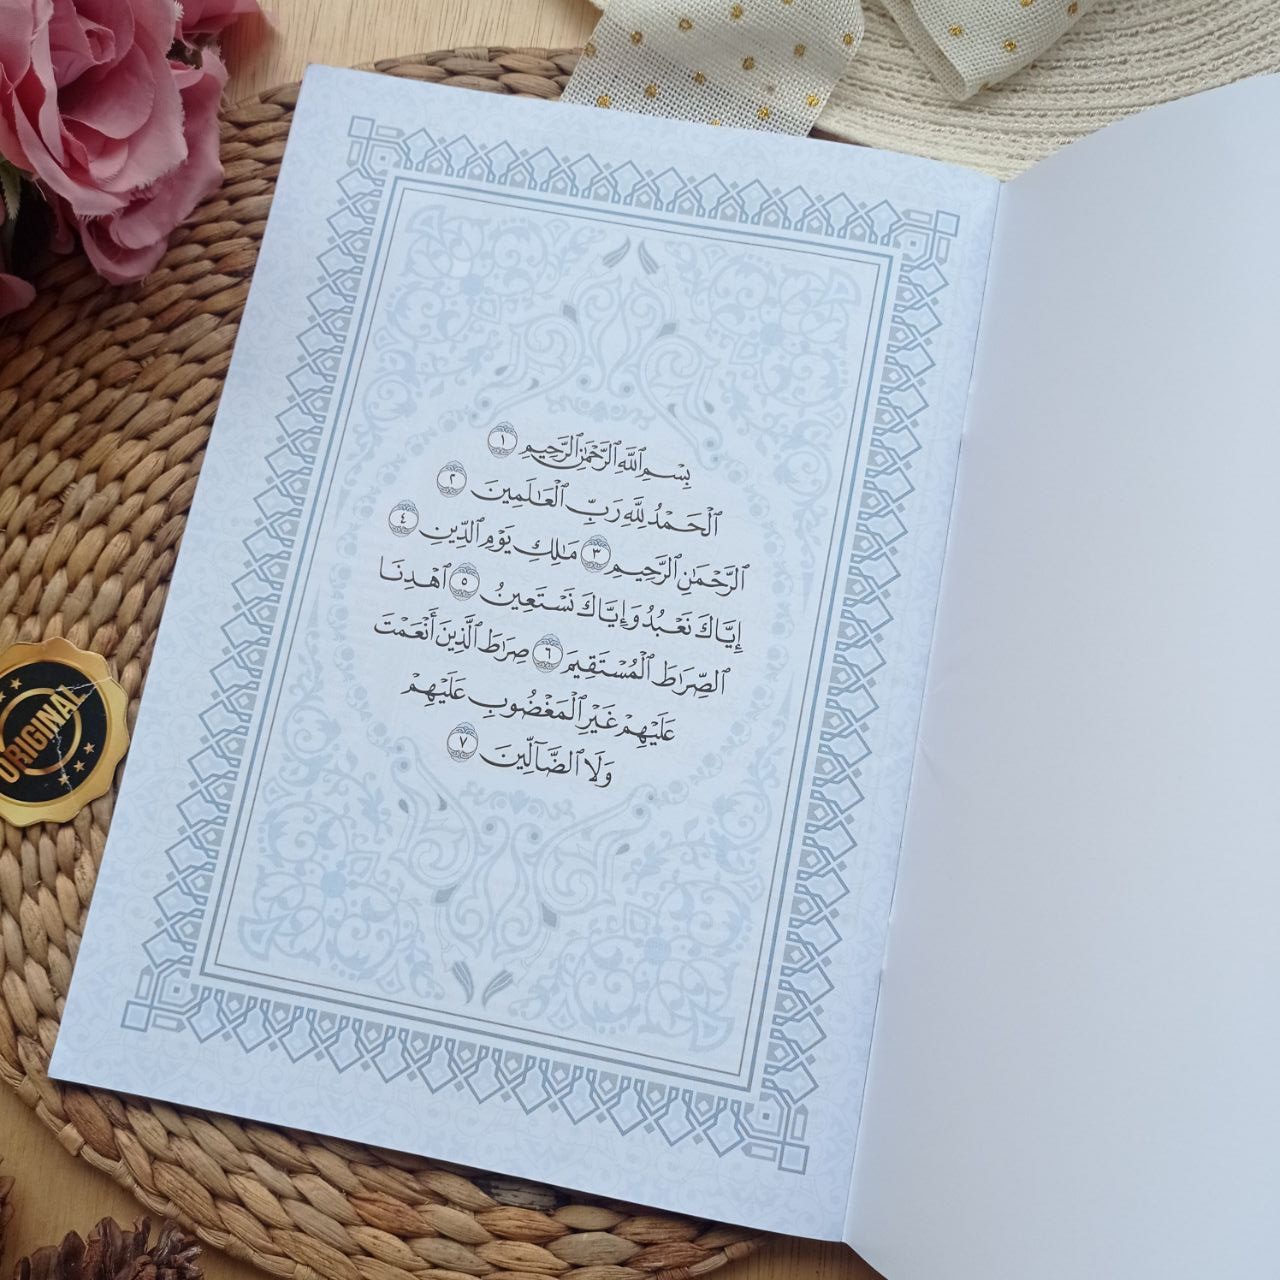 بِسْمِ ٱللَّهِ ٱلرَّحْمَٰنِ ٱلرَّحِيمِ ١
ٱلْحَمْدُ لِلَّهِ رَبِّ ٱلْعَٰلَمِينَ ٢
ٱلرَّحْمَٰنِ ٱلرَّحِيمِ ٣ مَٰلِكِ يَوْمِ ٱلدِّينِ ٤
إِيَّاكَ نَعْبُدُ وَإِيَّاكَ نَسْتَعِينُ ٥ ٱهْدِنَا
ٱلصِّرَٰطَ ٱلْمُسْتَقِيمَ ٦ صِرَٰطَ ٱلَّذِينَ أَنْعَمْتَ
عَلَيْهِمْ غَيْرِ ٱلْمَغْضُوبِ عَلَيْهِمْ
وَلَا ٱلضَّآلِّينَ ٧
ORIGINAL